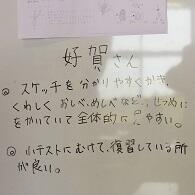 好賀さん
◎ スケッチを分かりやすくかき
くわしく おしべ、めしべ など、せつめい
をかいていて全体的に見やすい。
◎ 小テストにむけて、復習している所
が良い。